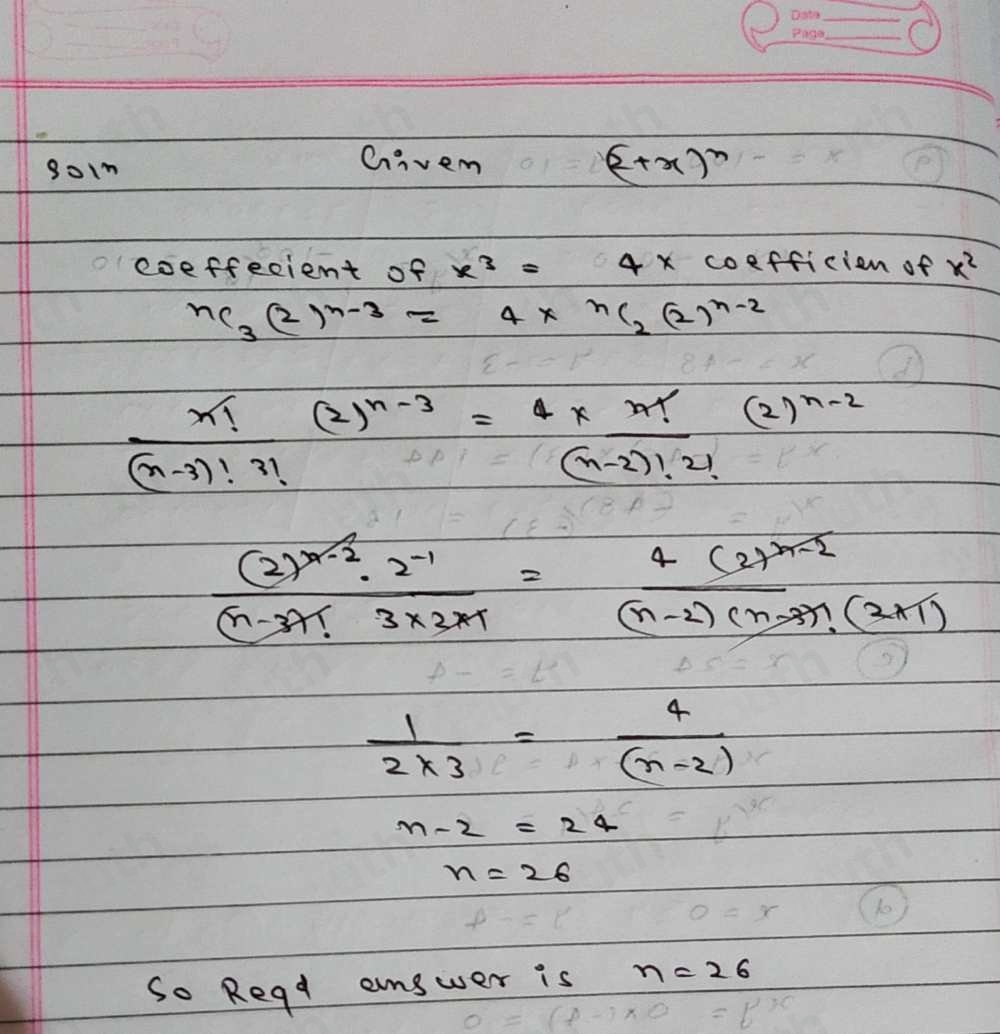 Date
Page
Soln Given (2+x)^n
coeffecient of x³ = 4 × coefficien of x²
nC₃ (2)^n-3 = 4 × nC₂ (2)^n-2
n!/(n-3)! 3! (2)^n-3 = 4 × n!/(n-2)! 2! (2)^n-2
(2)^n-2 . 2^-1/(n-3)! 3×2×1 = 4 (2)^n-2/(n-2) (n-3)! (2×1)
1/2×3 = 4/(n-2)
n-2 = 24
n = 26
So Reqd answer is n = 26